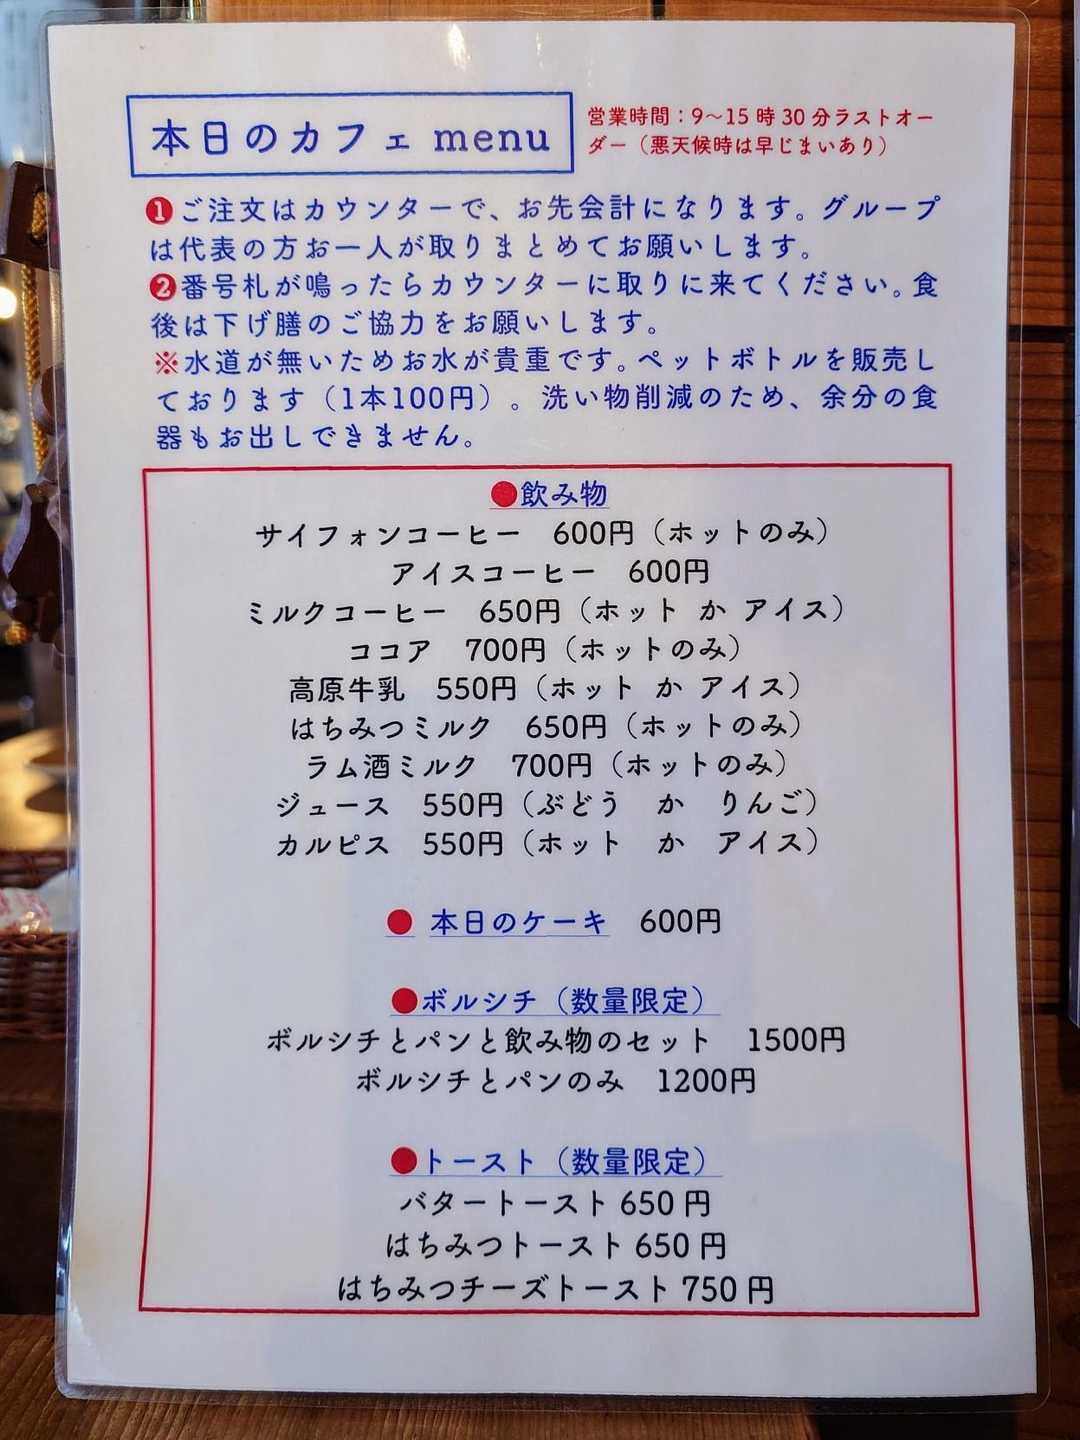 本日のカフェ menu
営業時間：9〜15時30分ラストオー
ダー（悪天候時は早じまいあり）
❶ご注文はカウンターで、お先会計になります。グループ
は代表の方お一人が取りまとめてお願いします。
❷番号札が鳴ったらカウンターに取りに来てください。食
後は下げ膳のご協力をお願いします。
※水道が無いためお水が貴重です。ペットボトルを販売し
ております（1本100円）。洗い物削減のため、余分の食
器もお出しできません。
●飲み物
サイフォンコーヒー　600円（ホットのみ）
アイスコーヒー　600円
ミルクコーヒー　650円（ホット か アイス）
ココア　700円（ホットのみ）
高原牛乳　550円（ホット か アイス）
はちみつミルク　650円（ホットのみ）
ラム酒ミルク　700円（ホットのみ）
ジュース　550円（ぶどう　か　りんご）
カルピス　550円（ホット　か　アイス）
● 本日のケーキ　600円
●ボルシチ（数量限定）
ボルシチとパンと飲み物のセット　1500円
ボルシチとパンのみ　1200円
●トースト（数量限定）
バタートースト 650 円
はちみつトースト 650 円
はちみつチーズトースト 750 円